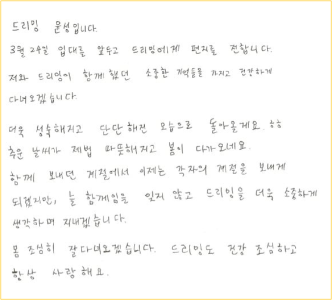 드리밍 윤성입니다.
3월 24일 입대를 앞두고 드리밍에게 편지를 전합니다.
저와 드리밍이 함께 했던 소중한 기억들을 가지고 건강하게
다녀오겠습니다.
더욱 성숙해지고 단단해진 모습으로 돌아올게요 ㅎㅎ
추운 날씨가 제법 따뜻해지고 봄이 다가오네요.
함께 보내던 계절에서 이제는 각자의 계절을 보내게
되겠지만, 늘 함께임을 잊지 않고 드리밍을 더욱 소중하게
생각하며 지내겠습니다.
몸 조심히 잘 다녀오겠습니다. 드리밍도 건강 조심하고
항상 사랑해요.